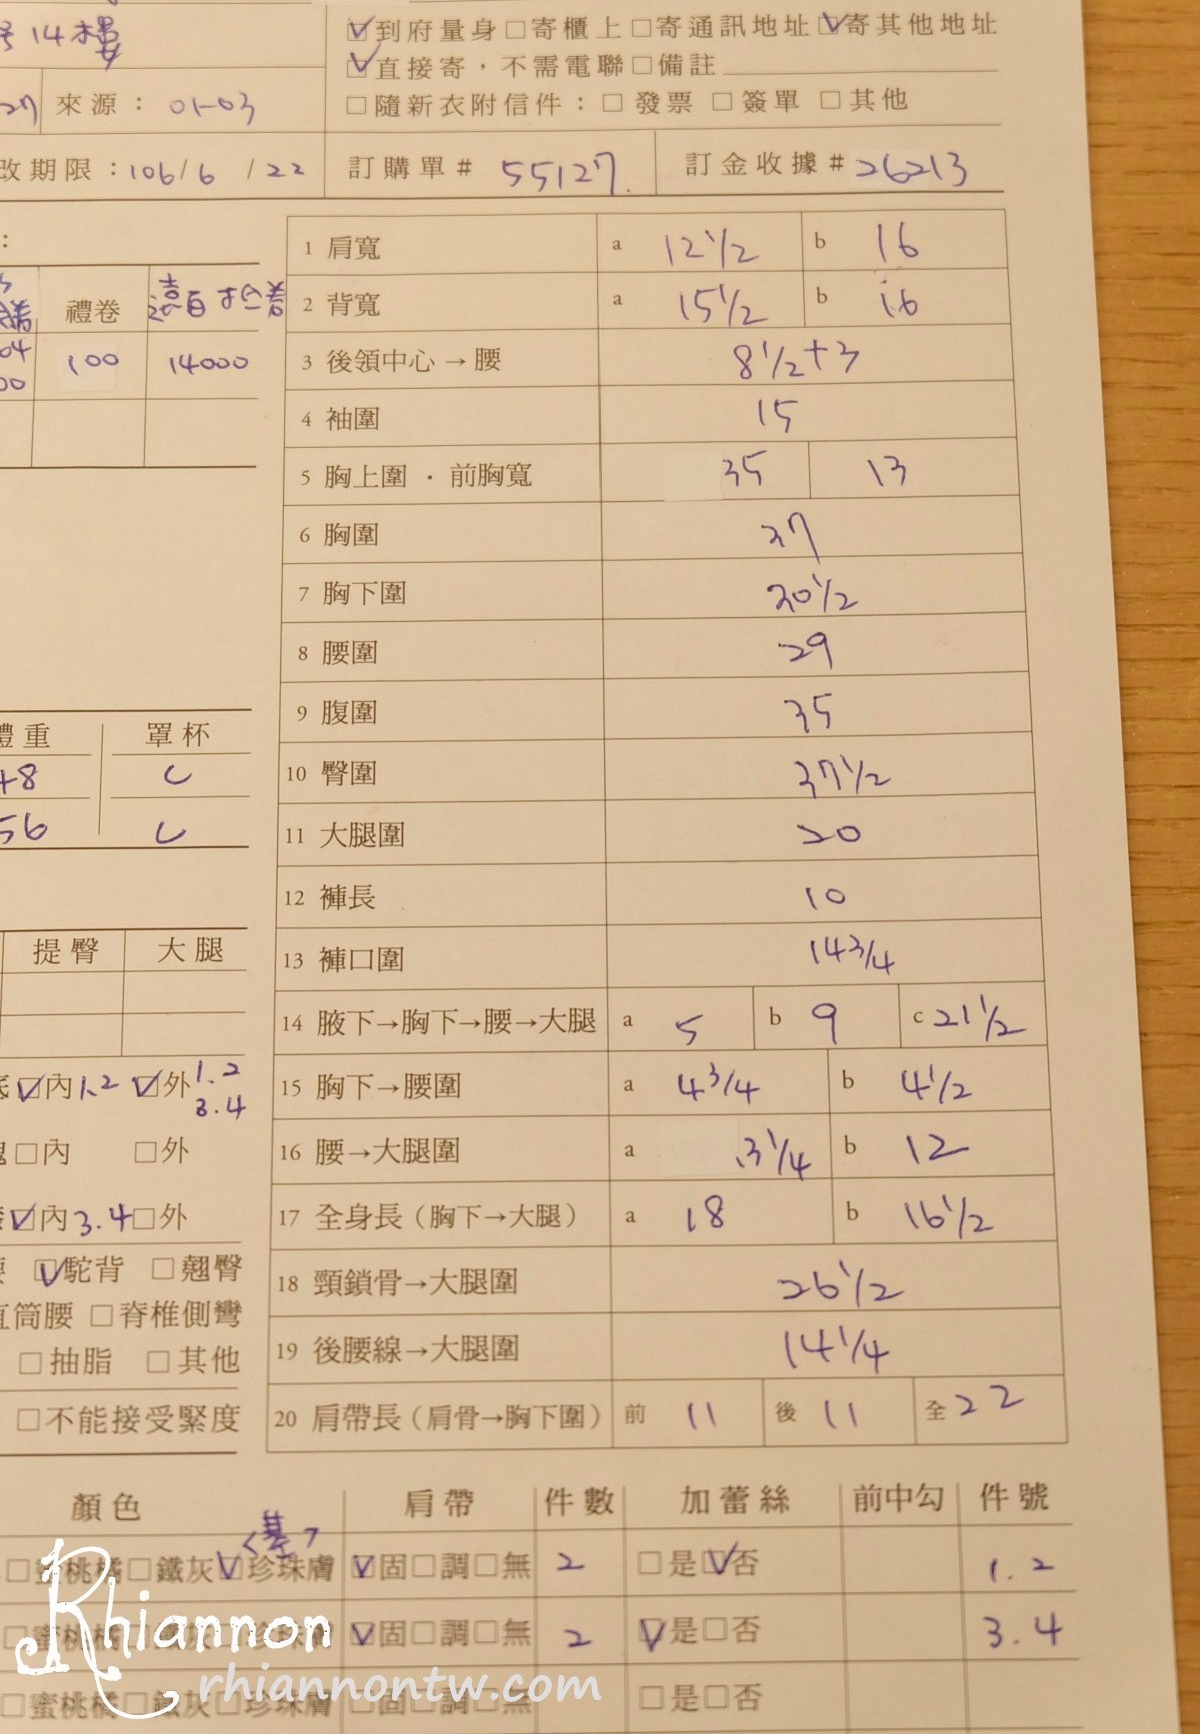 14樓
☑到府量身□寄櫃上□寄通訊地址☑寄其他地址
☑直接寄，不需電聯□備註
27 來源： 01-03
□隨新衣附信件：□ 發票 □ 簽單 □ 其他
改期限：106/6 /22 訂購單# 55127. 訂金收據# 26213
：
禮卷
100 14000
1 肩寬 a 12 1/2 b 16
2 背寬 a 15 1/2 b 16
3 後領中心→腰 8 1/2+3
4 袖圍 15
5 胸上圍・前胸寬 35 13
6 胸圍 37
7 胸下圍 30 1/2
8 腰圍 29
9 腹圍 35
10 臀圍 37 1/2
11 大腿圍 20
12 褲長 10
13 褲口圍 14 3/4
14 腋下→胸下→腰→大腿 a 5 b 9 c 21 1/2
15 胸下→腰圍 a 4 3/4 b 4 1/2
16 腰→大腿圍 a 3 1/4 b 12
17 全身長（胸下→大腿） a 18 b 16 1/2
18 頸鎖骨→大腿圍 26 1/2
19 後腰線→大腿圍 14 1/4
20 肩帶長（肩骨→胸下圍） 前 11 後 11 全 22
體重 罩杯
48 C
56 C
提臀 大腿
☑內1.2 ☑外1.2
3.4
□內 □外
☑內3.4□外
☑駝背 □翹臀
直筒腰 □脊椎側彎
□抽脂 □其他
□不能接受緊度
顏色 肩帶 件數 加蕾絲 前中勾 件號
□蜜桃橘□鐵灰☑珍珠膚 ☑固□調□無 2 □是☑否 1.2
□蜜桃橘□鐵灰□珍珠膚 ☑固□調□無 2 ☑是□否 3.4
□蜜桃橘□鐵灰□珍珠膚 □固□調□無 □是□否
Rhiannon
rhiannontw.com